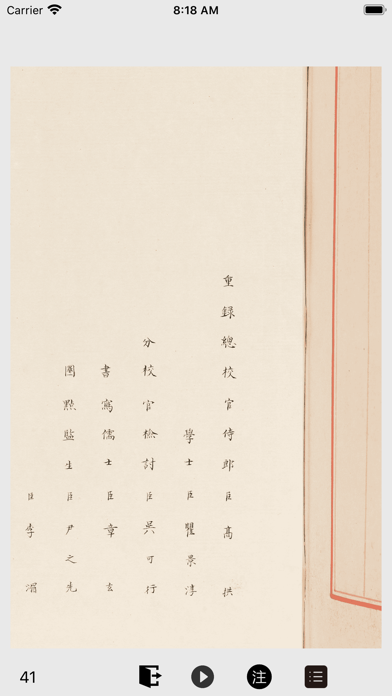 Carrier
8:18 AM
重録總校官侍郎臣高拱
學士臣瞿景淳
分校官檢討臣吳可行
書寫儒士臣章玄
圈點監生臣尹之先
臣李湄
41
注